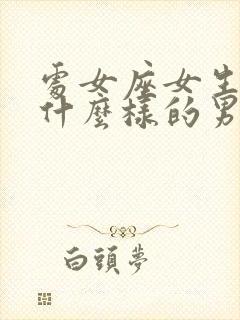 處女座女生
什麼樣的男
白頭夢